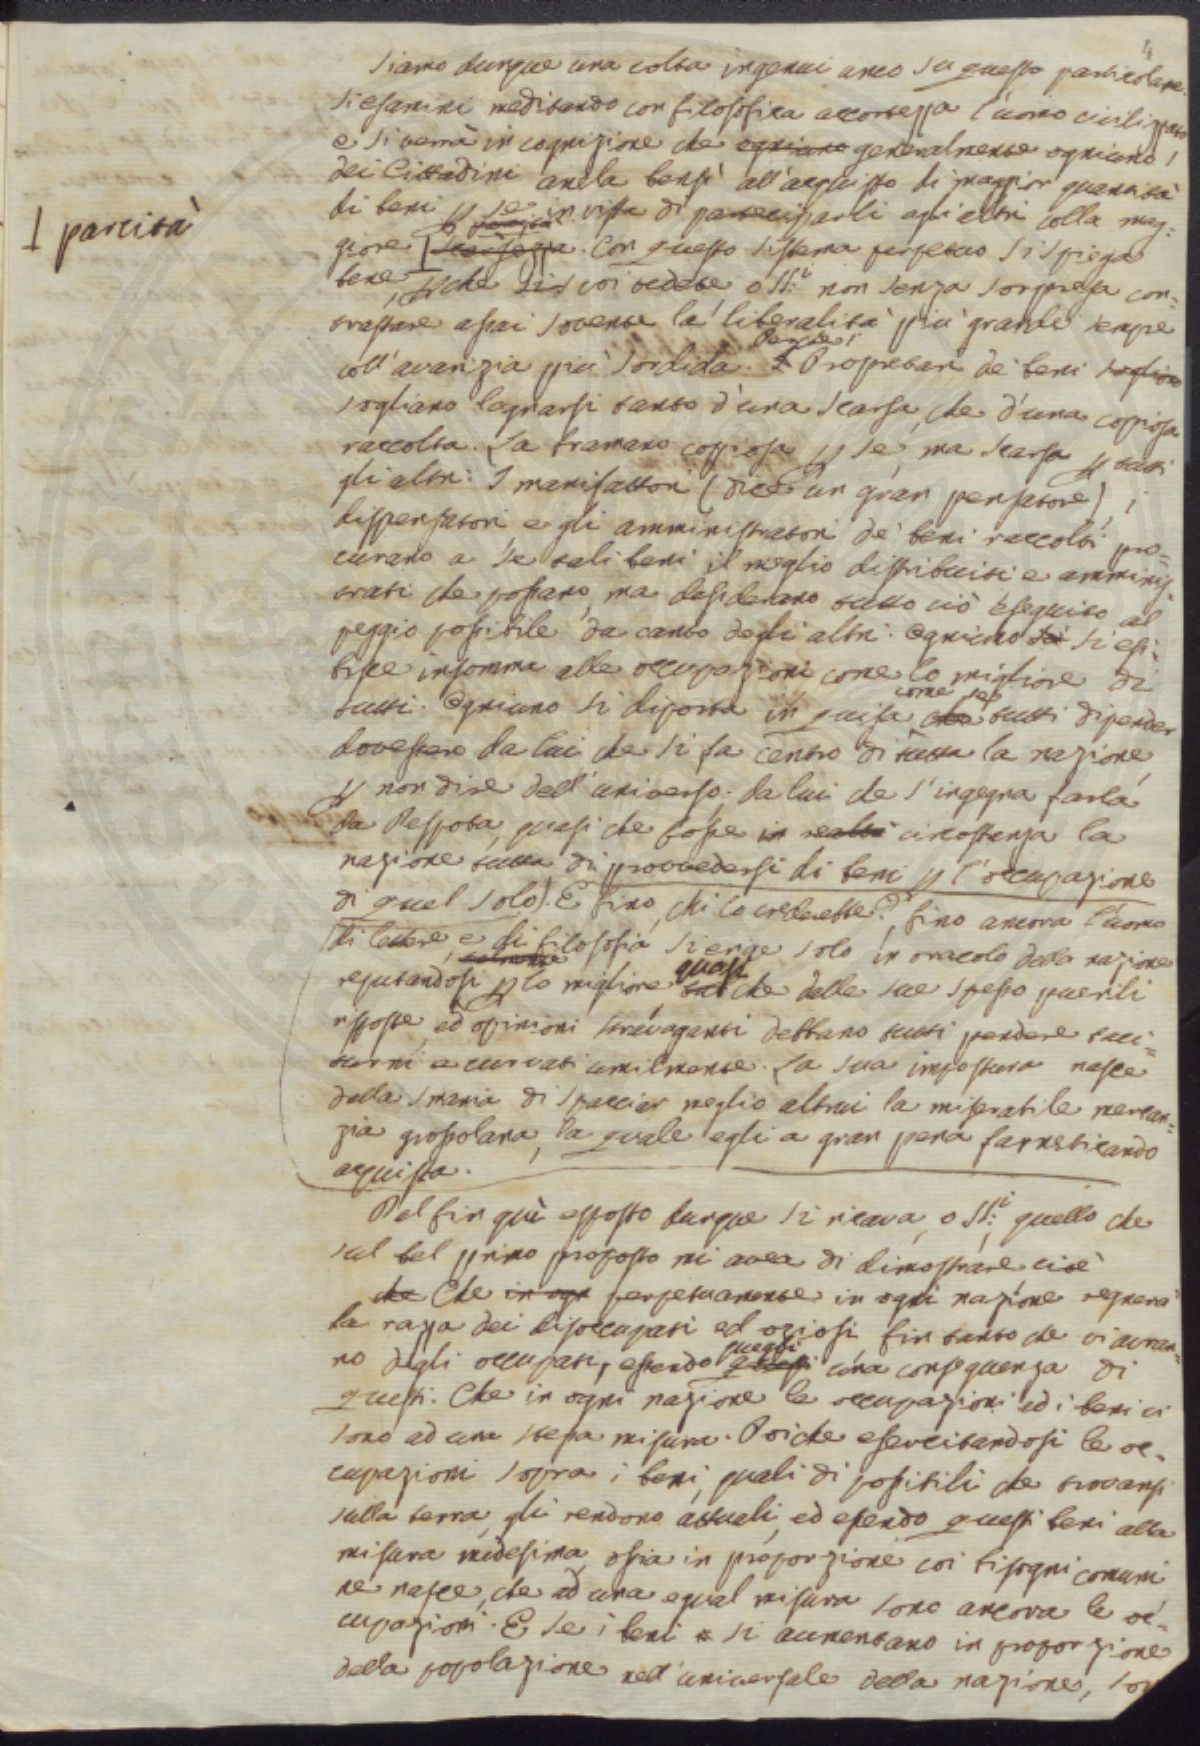 4
Siamo dunque una volta ingenui anco su questo particolare.
Si esamini meditando con filosofica accortezza l'uomo civilizzato
e si verrà in cognizione che ogniuno generalmente ogniuno
dei Cittadini anela bensì all'acquisto di maggior quantità
di beni p se in vista di parteciparli agli altri colla mag=
⊥ parcità
giore | scarsezza. Con questo sistema perpetuo si spiega
bene, p che voi vedete, o SS:i non senza sorpresa con=
trastare assai sovente la liberalità più grande sempre
coll'avarizia più sordida. Perciò i Propretari de' beni sogliono
sogliano lagnarsi tanto d'una scarsa, che d'una copiosa
raccolta. La bramano coppiosa p se, ma scarsa p tutti
gli altri: I manifattori (dice un gran pensatore), i
dispensatori, e gli amministratori de' beni raccolti pro=
curano a se tali beni il meglio distribuiti e amminis=
trati che possano, ma desiderano tutto ciò eseguito al
peggio possibile da canto degli altri. Ogniuno dei si esi=
bisce insomma alle occupazioni come lo migliore di
tutti. Ogniuno si diporta in guisa come se che tutti dipender
dovessero da lui che si fa centro di tutta la nazione,
p non dire dell'universo; da lui che s'ingegna farla
da Despota, quasi che fosse in realtà circostanza la
nazione tutta di provvedersi di beni p l'occupazione
di quel solo). E fino, chi lo crederebbe? fino ancora l'uomo
di lettere e di filosofia si erge solo in oracolo della nazione
reputandosi p lo migliore quasi che dalle sue spesso puerili
risposte, ed opinioni stravaganti debbano tutti pendere taci=
turni e curvati umilmente. La sua impostura nasce
dalla smania di spacciar meglio altrui la miserabile mercan=
zia grossolana, la quale egli a gran pena farneticando
acquista.
Dal fin quì esposto dunque si ricava, o SS:i, quello che
sul bel primo proposto mi avea di dimostrare cioè
che Che in ogn perpetuamente in ogni nazione regnerà
la razza dei disoccupati ed oziosi fin tanto che vi avran=
no degli occupati, essendo quegli questi una conseguenza di
questi. Che in ogni nazione le occupazioni ed i beni vi
sono ad una stessa misura. Poiche esercitandosi le oc=
cupazioni sopra i beni, quali di possibili che trovansi
sulla terra, gli rendono attuali, ed essendo questi beni alla
misura medesima, ossia in proporzione coi bisogni comuni
ne nasce, che ad una egual misura sono ancora le oc=
cupazioni. E se i beni si aumentano in proporzione
della popolazione nell'universale della nazione,